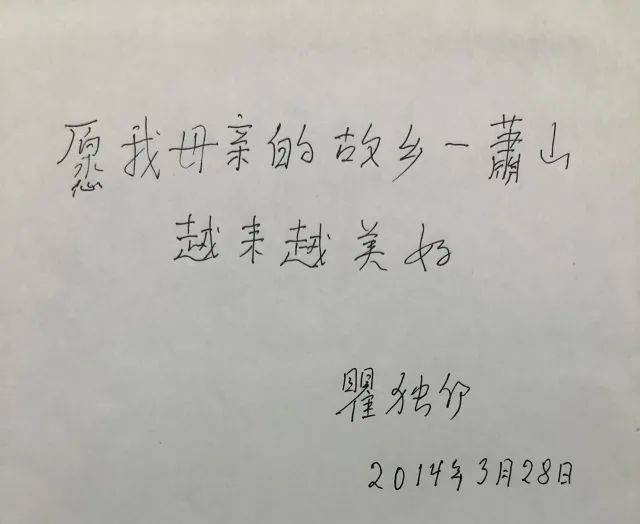 愿我母亲的故乡一萧山
越来越美好
瞿独伊
2014年3月28日